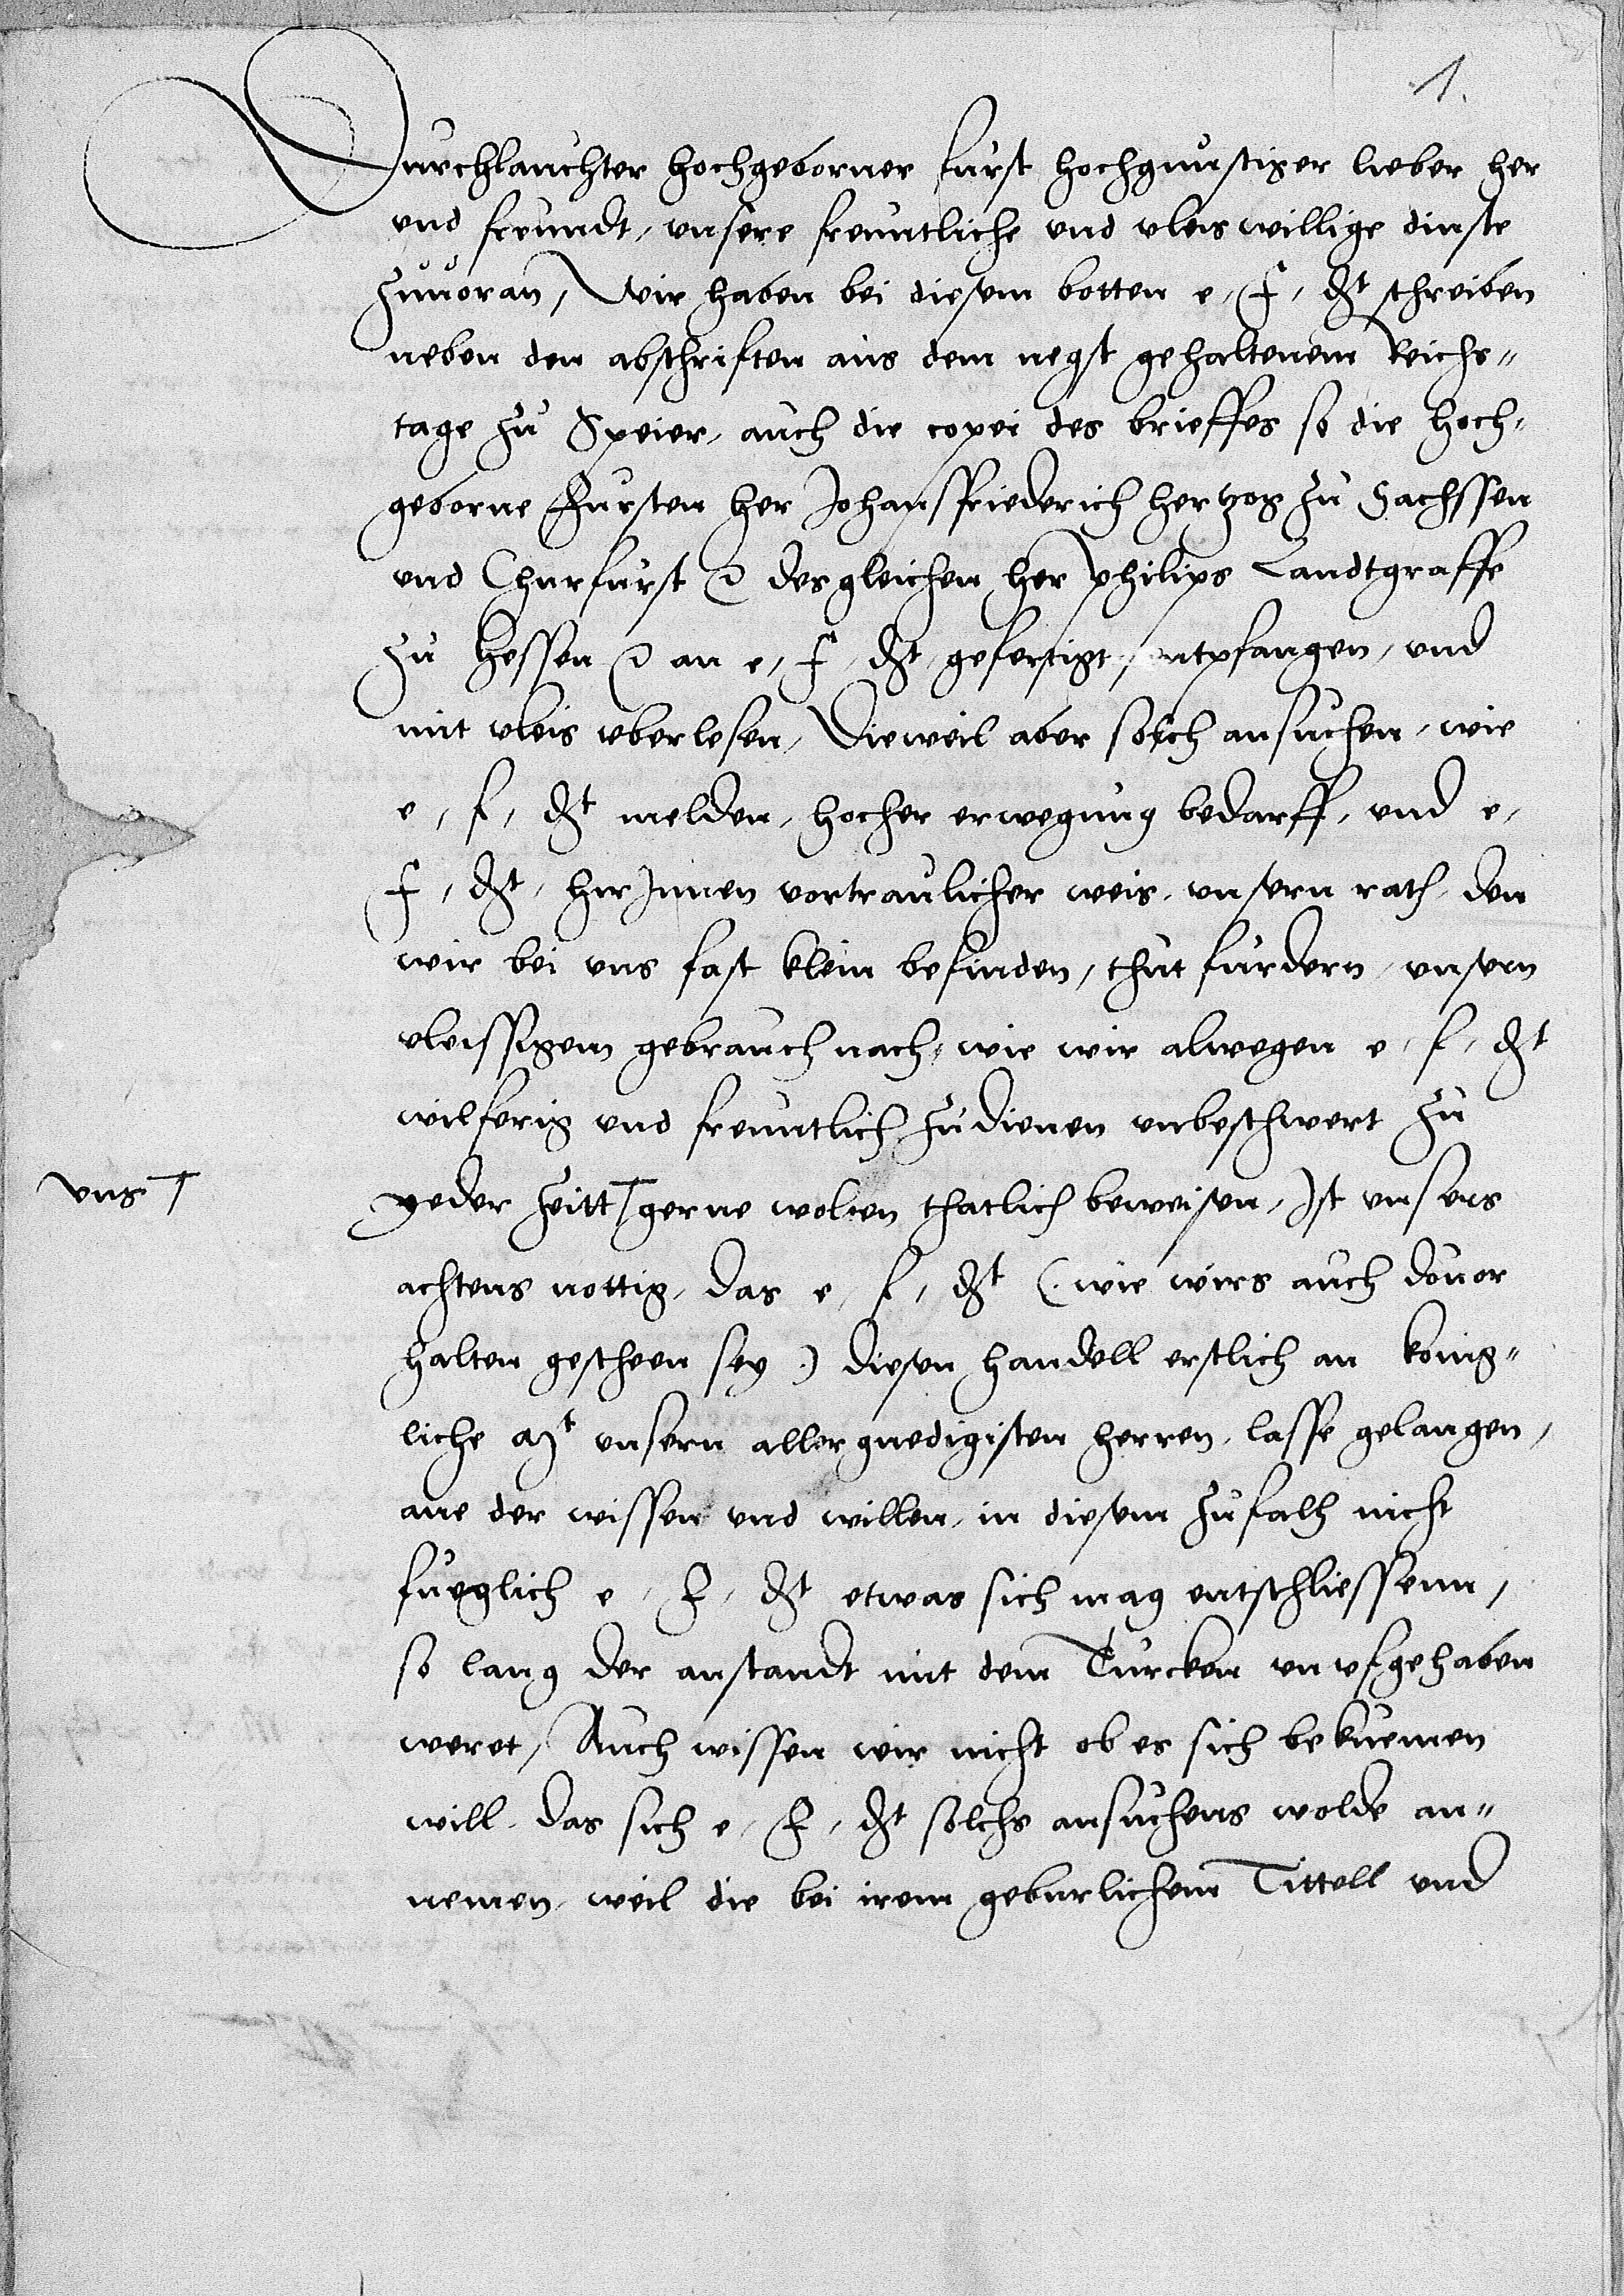 1.
Durchlauchter hochgeborner furst hochgunstiger lieber her
vnd freundt, vnsere freuntliche vnd vleiswillige dinste
zuuoran, Wir haben bei diesem botten e, f, dt schreiben
neben den abschriften aus dem negst gehaltenem Reichs"
tage zu Speier, auch die copei des brieffes so die hoch"
geborne Fursten her Johansfriederich hertzog zu Sachssen
vnd Churfurst ꝛc desgleichen her philips Landtgraffe
zu Hessen ꝛc an e, f, dt gefertigt, entpfangen, vnd
mit vleis vberlesen, Dieweil aber solch ansuchen, wie
e, f, dt melden, hocher erwegung bedarff, vnd e,
f, dt, hirInnen vortraulicher weis, vnsern rath, den
wir bei vns fast klein befinden, thut furdern, vnsern
vleissigem gebrauch nach, wie wir alwegen e, f, dt
wilferig vnd freuntlich zudienen vnbeschwert zu
vns yeder zeitt gerne wolten thatlich beweisen, Ist vnsers
achtens nottig, das e, f, dt (. wie wirs auch douor
halten gescheen sey .) diesen handell erstlich an konig"
liche Mt vnsern allergnedigisten herren, lasse gelangen,
ane der wissen vnd willen, in diesem zufalh nicht
fueglich e, F, dt etwas sich mag entschliessenn,
so lang der anstandt mit dem Turcken vnufgehaben
weret, Auch wissen wir nicht ob es sich bekuemen
will, das sich e, F, dt solchs ansuchens wolde an"
nemen, weil die bei irem geburlichem Tittell vnd